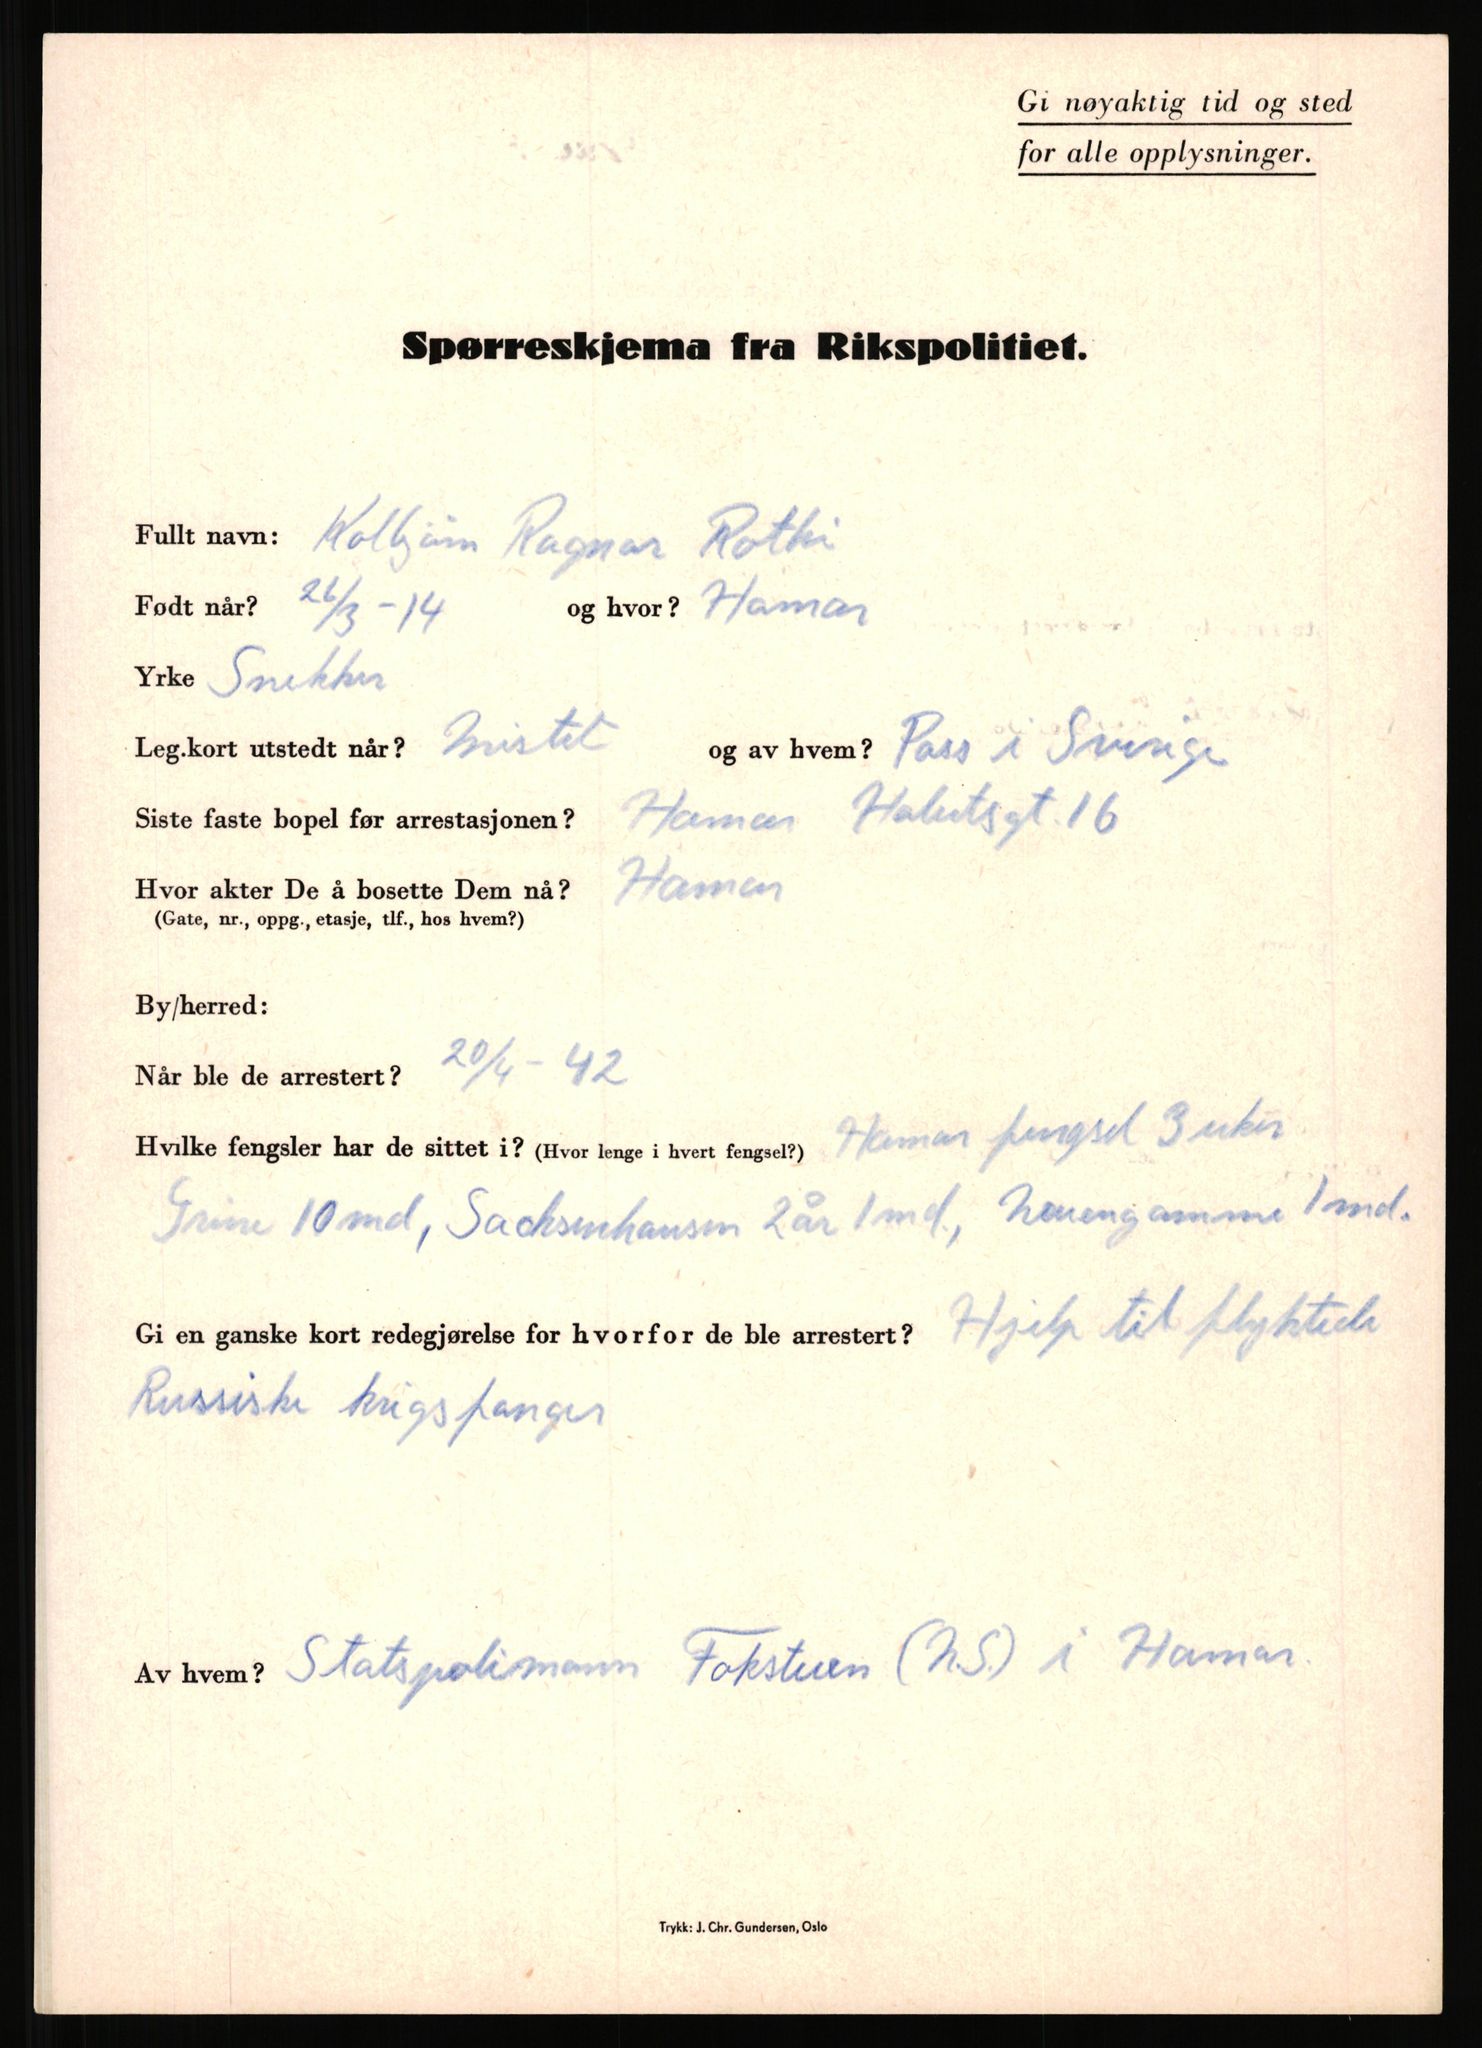 Gi nøyaktig tid og sted
for alle opplysninger.
Spørreskjema fra Rikspolitiet.
Fullt navn: Kolbjørn Ragnar Rothi
Født når? 26/3 - 14 og hvor? Hamar
Yrke Snekker
Leg.kort utstedt når? Mistet og av hvem? Pass i Sverige
Siste faste bopel før arrestasjonen? Hamar 16
Hvor akter De å bosette Dem nå? Hamar
(Gate, nr., oppg., etasje, tlf., hos hvem?)
By/herred:
Når ble de arrestert? 20/4 - 42
Hvilke fengsler har de sittet i? (Hvor lenge i hvert fengsel?) Hamar fengsel 3 uker
Grini 10 md, Sachsenhausen 2 år 1 md., Neuengamme 1 md.
Gi en ganske kort redegjørelse for hvorfor de ble arrestert? Hjelp til flyktede
Russiske krigsfanger
Av hvem? Statspolimann Fokstuen (N.S.) i Hamar.
Trykk: J. Chr. Gundersen, Oslo